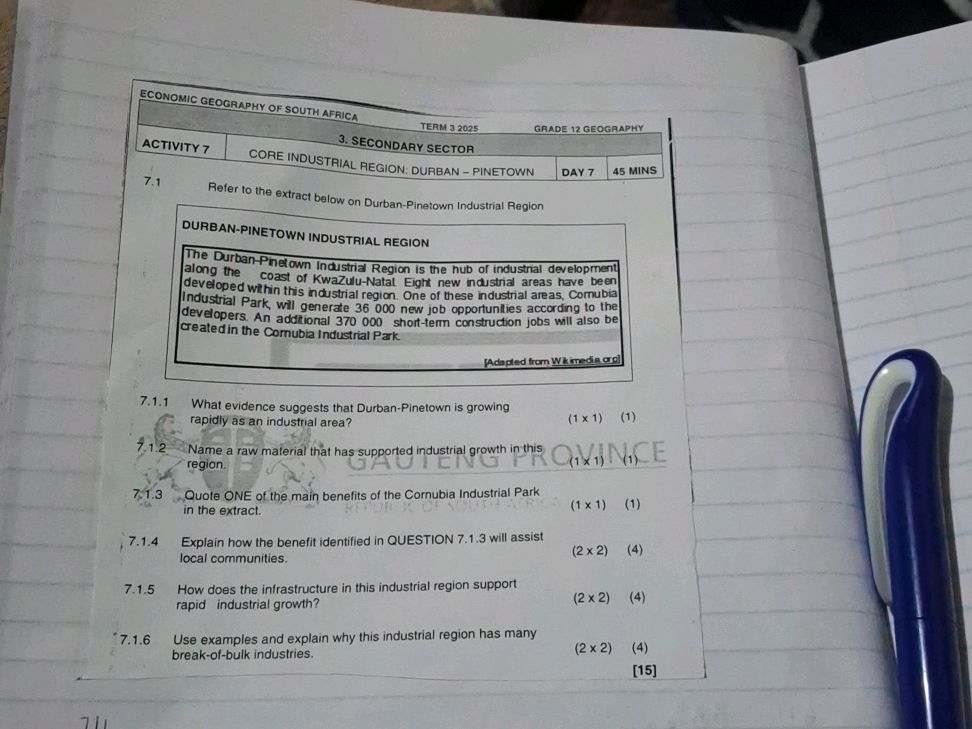 ECONOMIC GEOGRAPHY OF SOUTH AFRICA TERM 3 2025 GRADE 12 GEOGRAPHY
3. SECONDARY SECTOR
ACTIVITY 7 CORE INDUSTRIAL REGION: DURBAN – PINETOWN DAY 7 45 MINS
7.1 Refer to the extract below on Durban-Pinetown Industrial Region
DURBAN-PINETOWN INDUSTRIAL REGION
The Durban-Pinetown Industrial Region is the hub of industrial development
along the coast of KwaZulu-Natal. Eight new industrial areas have been
developed within this industrial region. One of these industrial areas, Cornubia
Industrial Park, will generate 36 000 new job opportunities according to the
developers. An additional 370 000 short-term construction jobs will also be
created in the Cornubia Industrial Park.
[Adapted from Wikimedia.org]
7.1.1 What evidence suggests that Durban-Pinetown is growing
rapidly as an industrial area? (1 x 1) (1)
7.1.2 Name a raw material that has supported industrial growth in this
region. (1 x 1) (1)
GAUTENG PROVINCE
7.1.3 Quote ONE of the main benefits of the Cornubia Industrial Park
in the extract. (1 x 1) (1)
REPUBLIC OF SOUTH AFRICA
7.1.4 Explain how the benefit identified in QUESTION 7.1.3 will assist
local communities. (2 x 2) (4)
7.1.5 How does the infrastructure in this industrial region support
rapid industrial growth? (2 x 2) (4)
7.1.6 Use examples and explain why this industrial region has many
break-of-bulk industries. (2 x 2) (4)
[15]